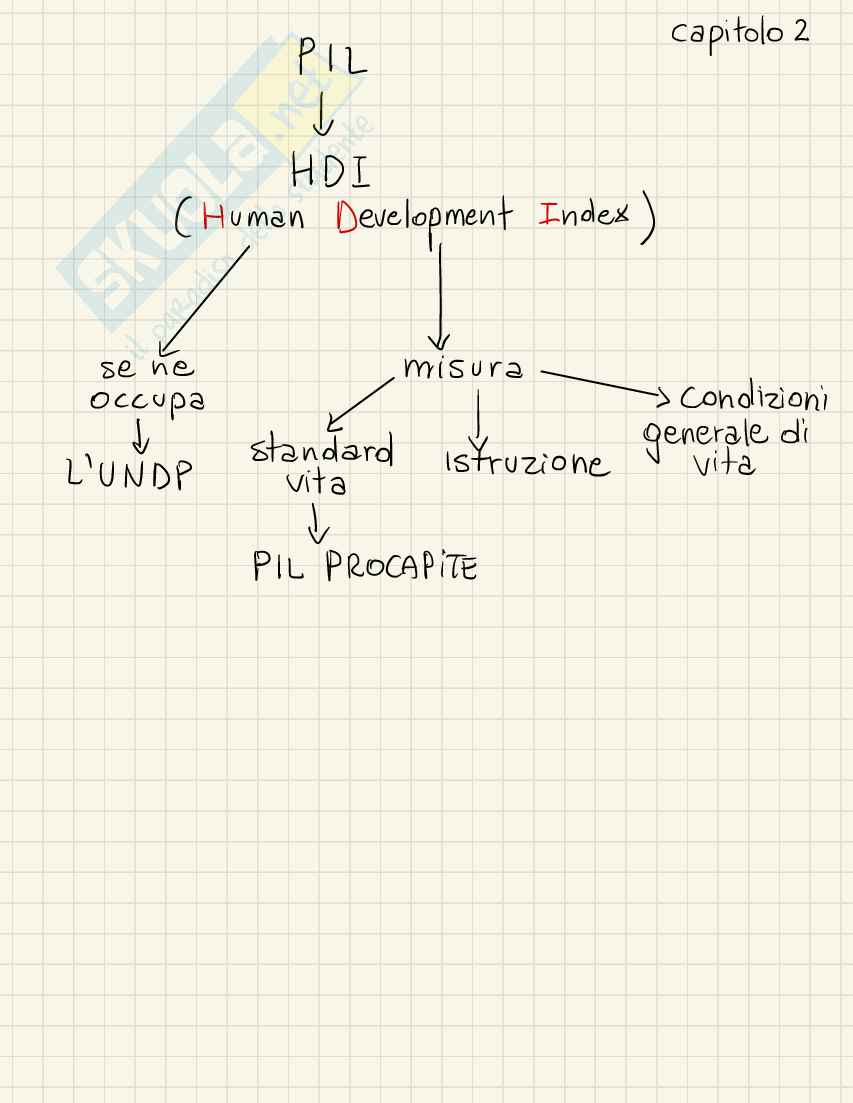 capitolo 2
PIL
HDI
(Human Development Index)
se ne
occupa
L'UNDP
misura
standard
vita
PIL PROCAPITE
Istruzione
condizioni
generale di
vita
SKUOLA.net
il paradiso dello studente